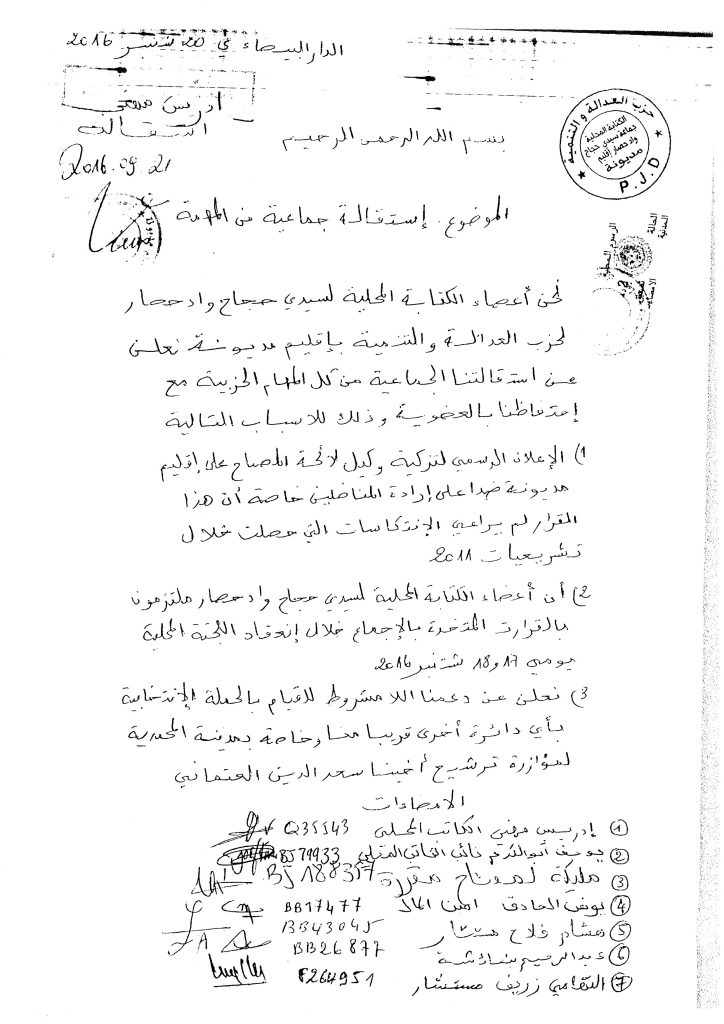 الدار البيضاء في 20 شتنبر 2016
إدريس مهني
استقالة
2016.09.21
بسم الله الرحمن الرحيم
حزب العدالة والتنمية
الكتابة المحلية
جماعة سيدي حجاج
واد حصار إقليم
مديونة
P.J.D
الموضوع. إستقالة جماعية من المهمة
نحن أعضاء الكتابة المحلية لسيدي حجاج واد حصار
لحزب العدالة والتنمية بإقليم مديونة نعلن
عن استقالتنا الجماعية من كل المهام الحزبية مع
إحتفاظنا بالعضوية وذلك للاسباب التالية
1) الإعلان الرسمي لتزكية وكيل لائحة المصباح على إقليم
مديونة ضدا على إرادة المناضلين خاصة أن هذا
القرار لم يراعي الإنتكاسات التي حصلت خلال
تشريعيات 2011
2) أن أعضاء الكتابة المحلية لسيدي حجاج واد حصار ملتزمون
بالقرارت المتخدة بالإجماع خلال إنعقاد اللجنة المحلية
يومي 17 و 18 شتنبر 2016
3) نعلن عن دعمنا اللا مشروط للقيام بالحملة الإنتخابية
بأي دائرة أخرى قريبا منا وخاصة بمدينة المحمدية
لمؤازرة ترشيح أخينا سعد الدين العتماني
الامضاءات
1 إدريس مهني الكاتب المحلي Q35543
2 يوسف أبو الكرم نائب الكاتب المحلي BJ79933
3 مليكة BJ188357
4 بوض الصادق امين المال BB17477
5 هشام فلاح مستشار BB43045
6 عبد الرحيم BB26877
7 التهامي زريف مستشار F264951